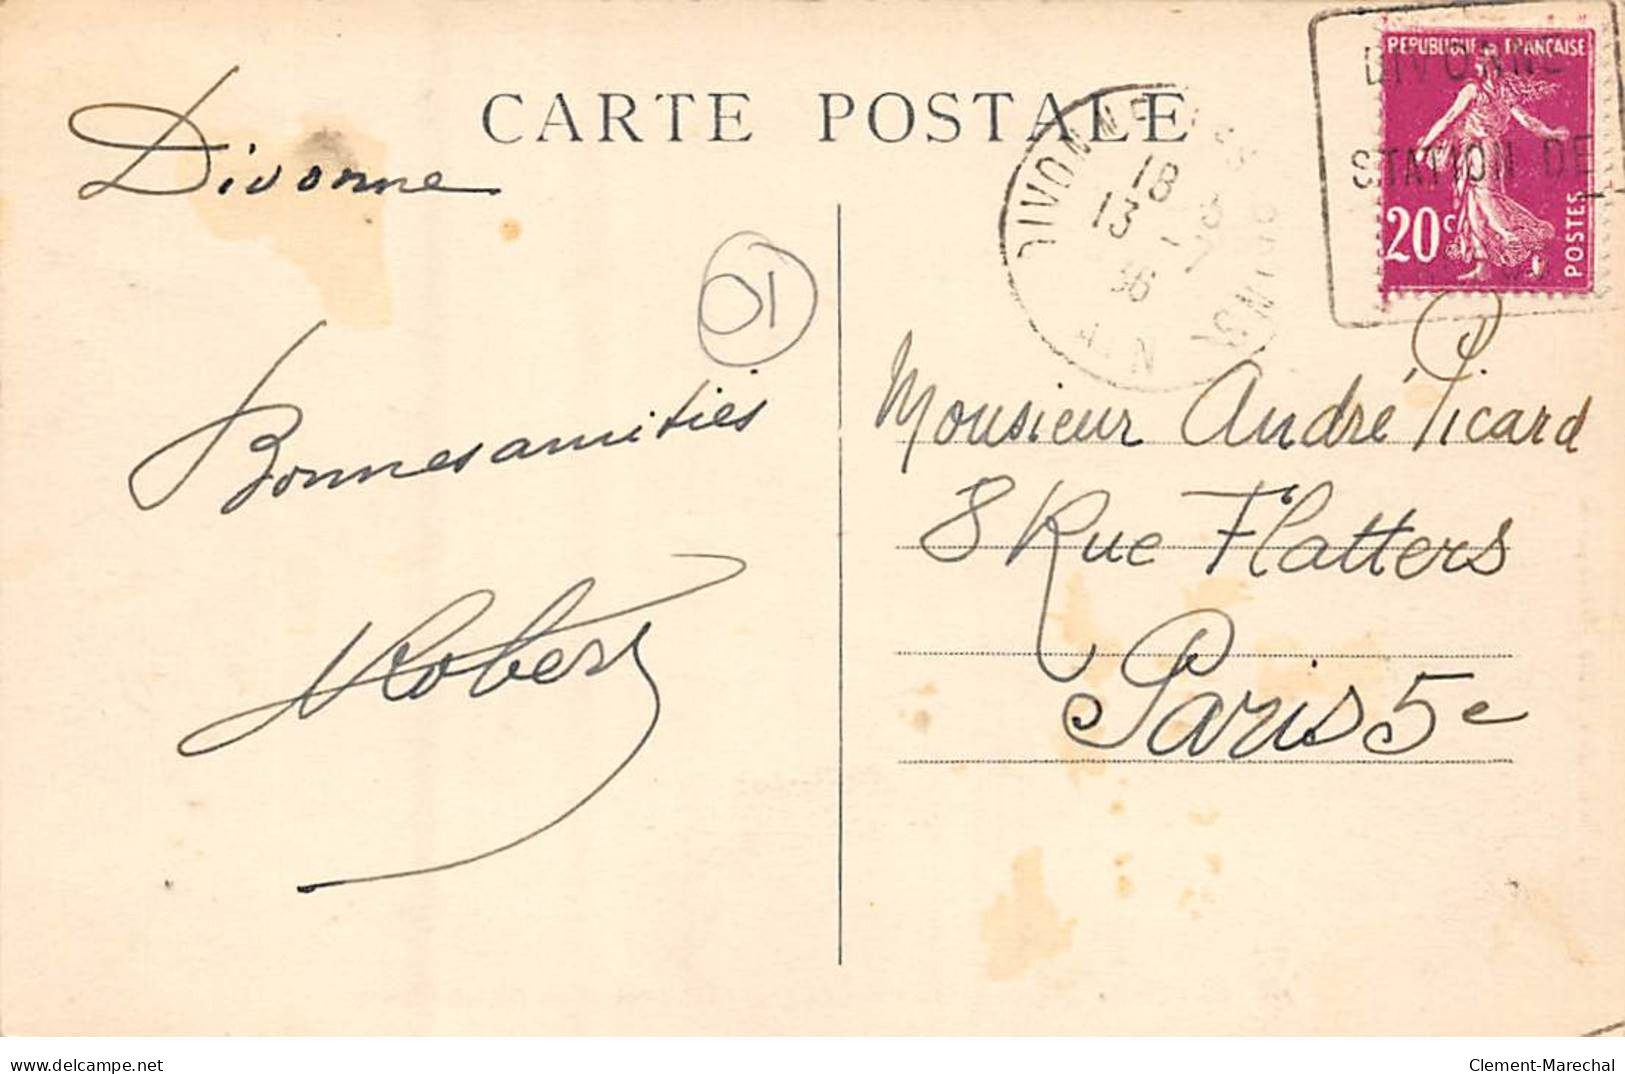 CARTE POSTALE
Divonne
01
Bonnes amitiés
Robert
DIVONNE LES BAINS
18
13
7
36
AIN
DIVONNE
STATION DE
REPUBLIQUE FRANÇAISE
20c
POSTES
Monsieur André Picard
8 Rue Flatters
Paris 5e
delcampe.net
Clement-Marechal